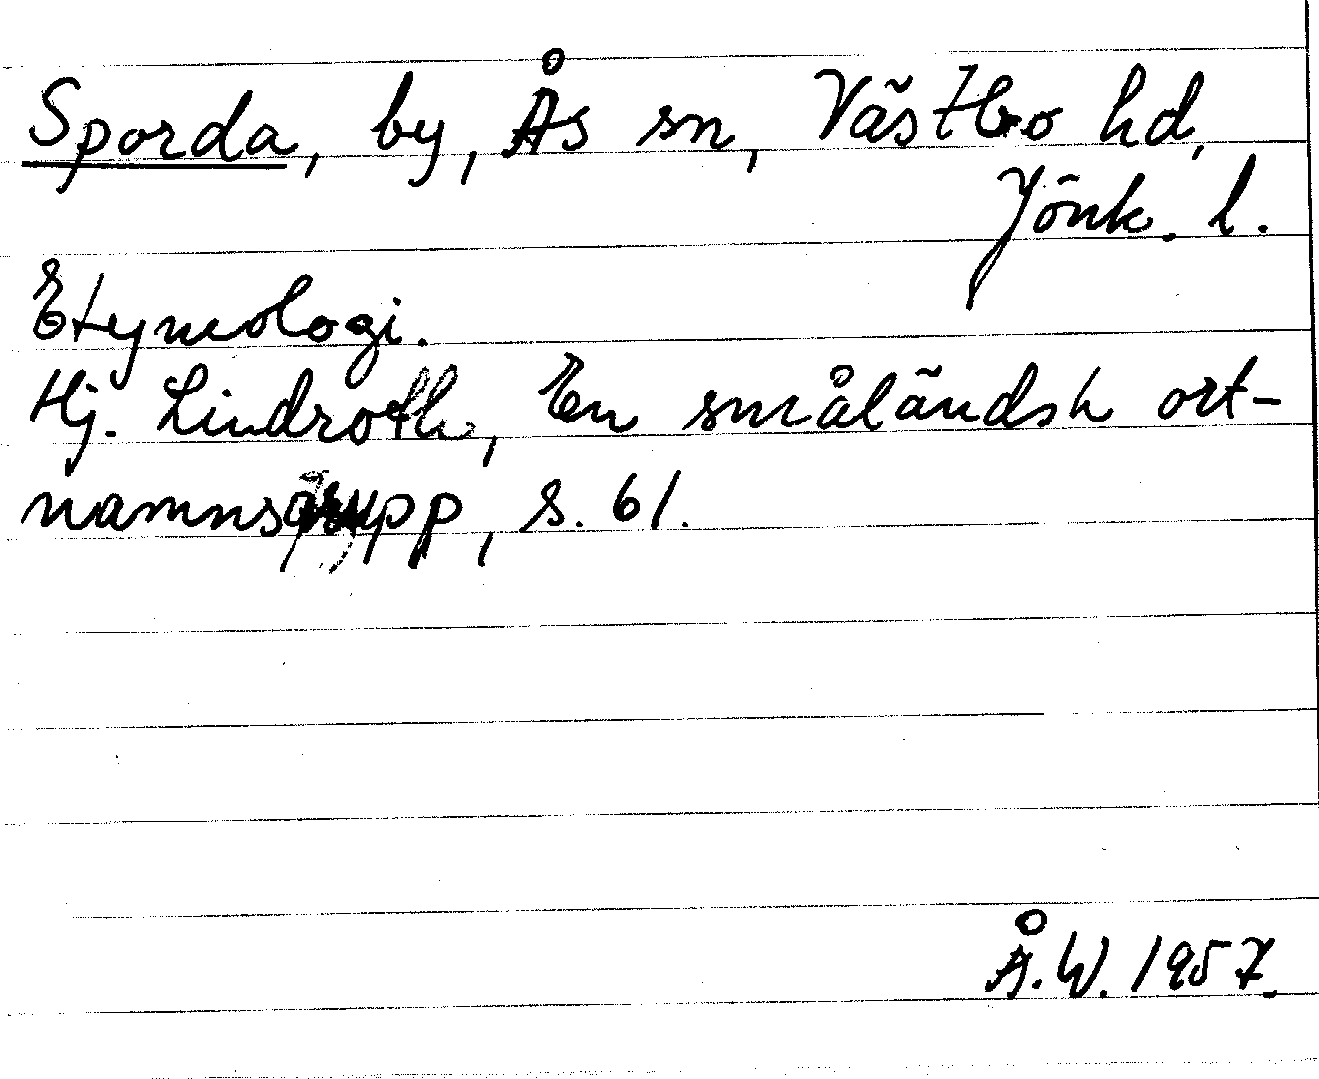 Sporda, by, Ås sn, Västbo hd,
Jönk. l.
Etymologi.
Hj. Lindroth, En småländsk ort-
namnsgrupp, s. 61.
Å.W. 1957.